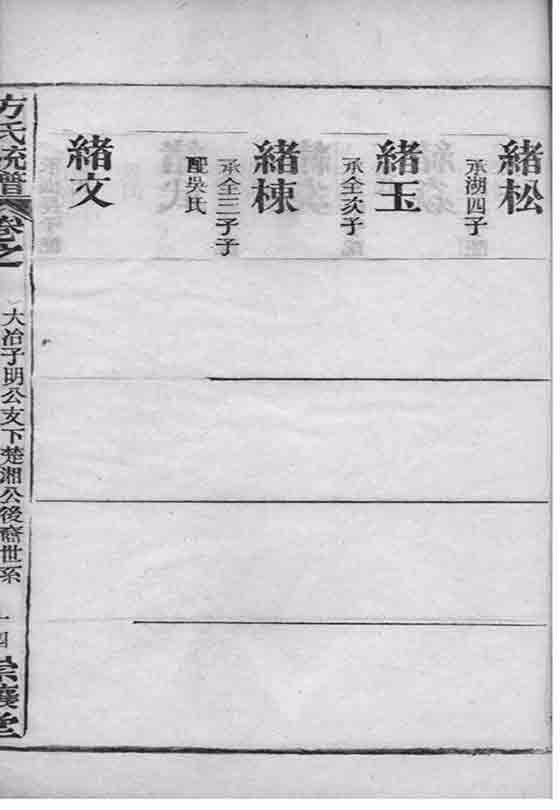 緒松
承湖四子
緒玉
承全次子
緒棟
承全三子子
配吳氏
緒文
方氏統譜
卷之
大冶子明公支下楚湘公後裔世系
十四
崇讓堂